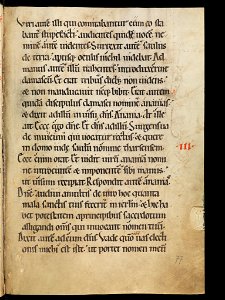 Viri autē illi qui comitabantur cum eo sta
bant stupefacti. audientes quidē uocē ne
minē autē uidentes. Surrexit autē saulus
de terra. aptisq; oculis nichil uidebat. Ad
manus autē illū trahentes. introduxerunt
damascū. Et erat tribus dieb; non uidens.
et non manducauit neq; bibit. Erat autem
quidā discipulus damasci nomine ananias.
et dixit ad illū in uisu dn̄s. Anania. At ille
ait. Ecce ego dn̄e. Et dn̄s ad illū. Surgens ua
de in uicum qui uocatur rectus. et quere
in domo iude saulū nomine tharsensem.
Ecce enim orat. Et uidit uirū ananiā nomi
ne introeuntē et imponentē sibi manus
ut uisum recipiat. Respondit autē ananias.
Dn̄e. audiui a multis de uiro hoc quanta
mala sanctis tuis fecerit in ierl̄m. et hic ha
bet potestatem a principibus sacerdotum
alligandi om̄s qui inuocant nomen tuū.
Dixit autē ad eum dn̄s. Vade quō uas electi
onis michi est iste. ut portet nomen meū
III.